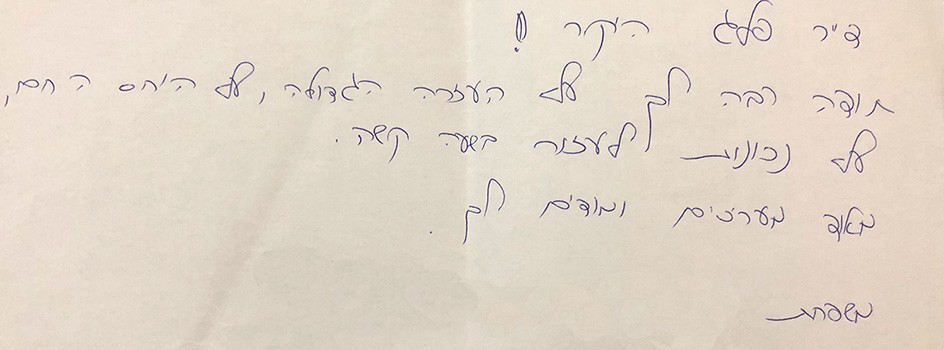 ד״ר פלג היקר !
תודה רבה לך על העזרה הגדולה, על היחס החם,
על נכונות לעזור בשעה קשה.
מאוד מעריכים ומודים לך.
משפחת